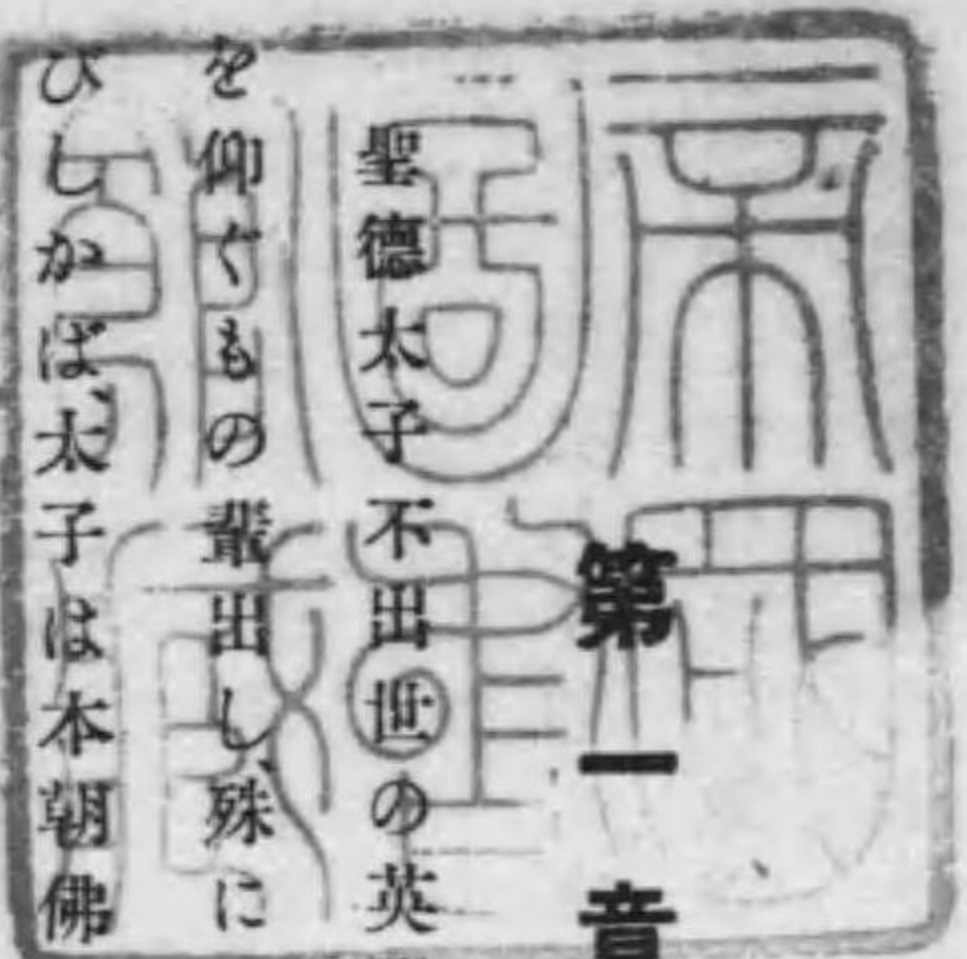 第一章
聖德太子不出世の英
を仰ぐもの輩出し、殊に
びしかば、太子は本朝佛
帝國
圖書
藏